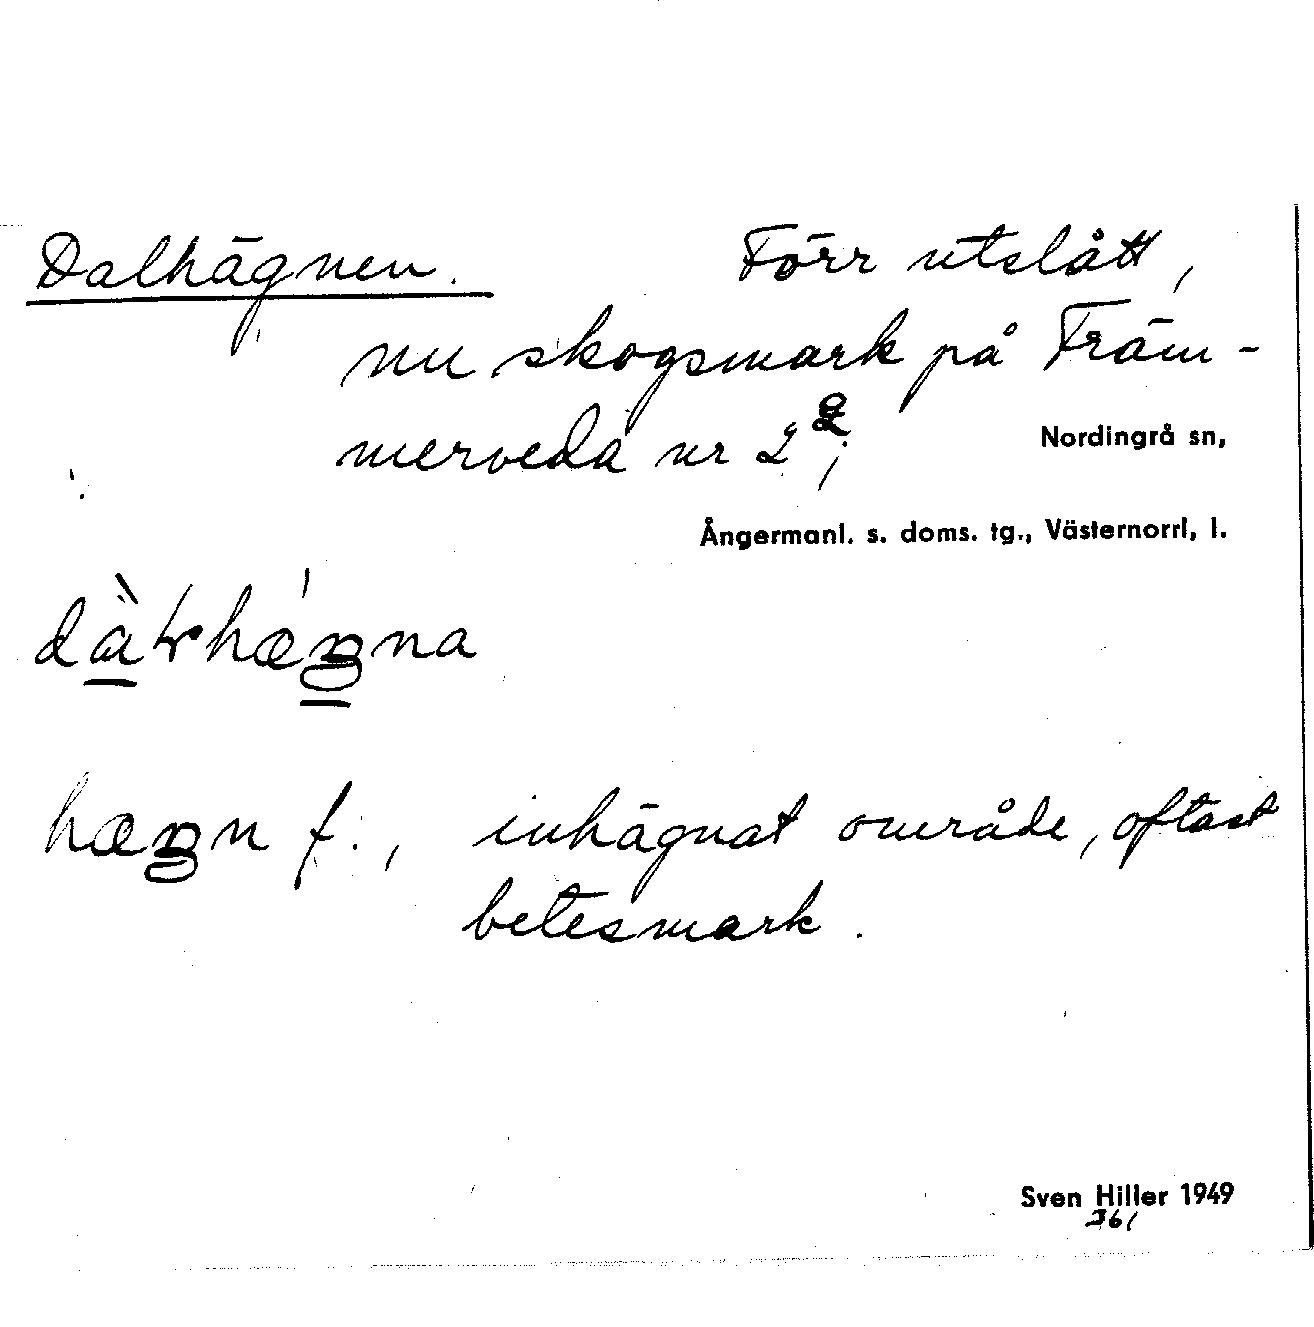 Dalhägnen. Förr utslått,
nu skogsmark på Främ-
merveda nr 2²;
Nordingrå sn,
Ångermanl. s. doms. tg., Västernorrl, l.
hægn f., inhägnat område, oftast
betesmark.
Sven Hiller 1949
361